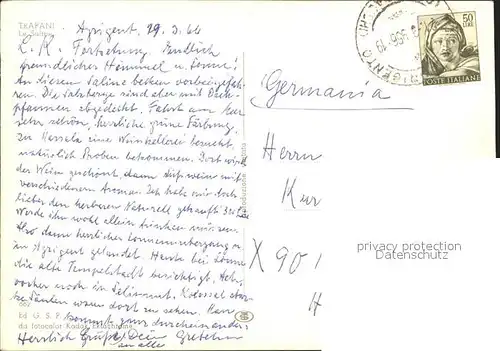 TRAPANI
Le Saline
Agrigent, 29.3.66
L. K. Fortsetzung. Endlich
freundlicher Himmel u. Sonne!
An diesen Saline becken vorbeigefah-
ren. Die Salzberge sind aber mit Dach-
pfannen abgedeckt. Fahrt am Meer
sehr schön, herrliche grüne Färbung.
In Marsala eine Weinkellerei besucht,
natürlich Proben bekommen. Dort wird
der Wein geschönt, dann Süßwein mit
verschiedenen Aromen. Ich habe mir doch
lieber den herberen Naturell gekauft.
Werde ihn wohl allein trinken müssen.
Also dann herrlicher Sonnenuntergang
in Agrigent gelandet. Heute bei Sonne
die alte Tempelstadt besichtigt.
vorher noch in Selinunt. Kolossal
Säulen waren dort zu sehen. Man
kommt ganz durcheinander.
Herzlich Grüße Dein Gretchen
an alle
Ed. G. S. F.
da fotocolor Kodak Ektachrome
Riproduzione vietata
Germania
Herrn
Kur
X 901
H
50
LIRE
POSTE ITALIANE
AGRIGENTO
privacy protection
Datenschutz